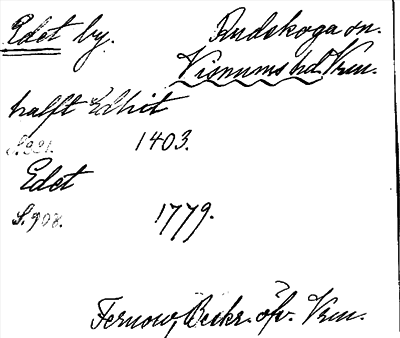 Edet by. Rudskoga sn.
Visnums hd. Vrm.
halfft Edhit
S. 221. 1403.
Edet
S. 908. 1779.
Fernow, Beskr. öfv. Vrm.